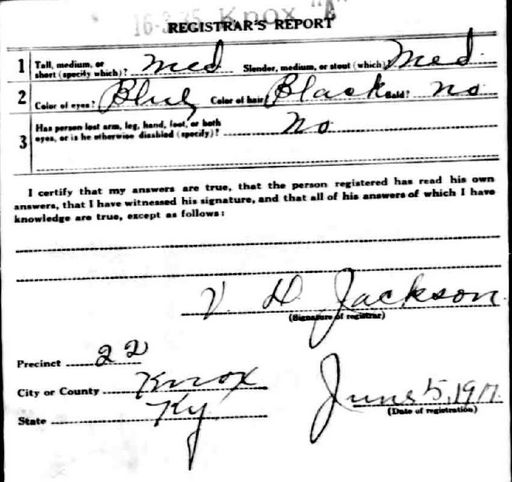 16-3-25 Knox "A"
REGISTRAR'S REPORT
1 Tall, medium, or short (specify which)? Med Slender, medium, or stout (which)? Med.
2 Color of eyes? Blue Color of hair? Black Bald? no
3 Has person lost arm, leg, hand, foot, or both eyes, or is he otherwise disabled (specify)? no
I certify that my answers are true, that the person registered has read his own
answers, that I have witnessed his signature, and that all of his answers of which I have
knowledge are true, except as follows:
V. D. Jackson
(Signature of registrar)
Precinct 22
City or County Knox
State Ky
June 5, 1917
(Date of registration)